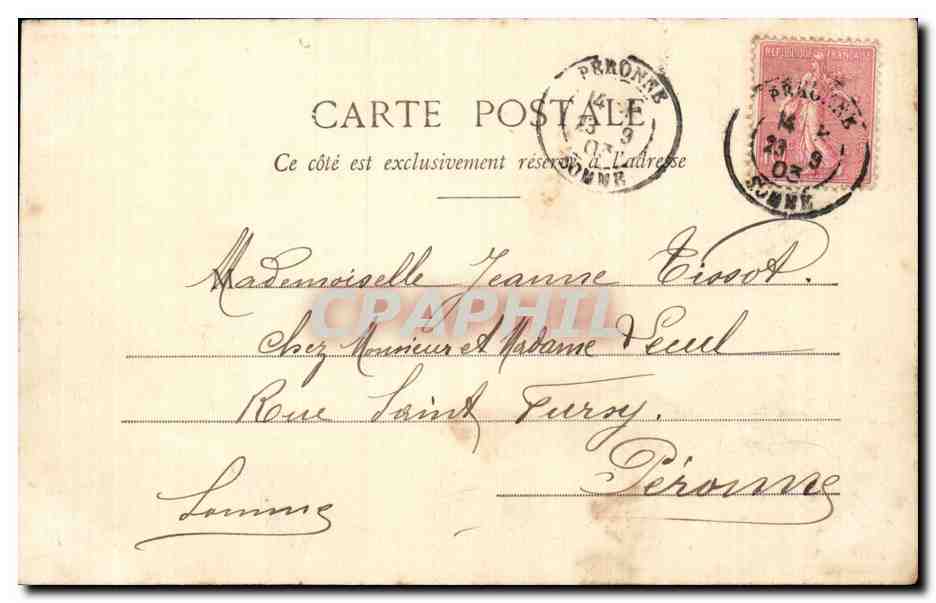 CARTE POSTALE
Ce côté est exclusivement réservé à l'adresse
PÉRONNE
14
23 9
03
SOMME
REPUBLIQUE FRANÇAISE
PERONNE
14
23 9
03
SOMME
Mademoiselle Jeanne Tissot.
CPAPHIL
chez Monsieur et Madame
Rue Saint Fursy.
Péronne
Somme